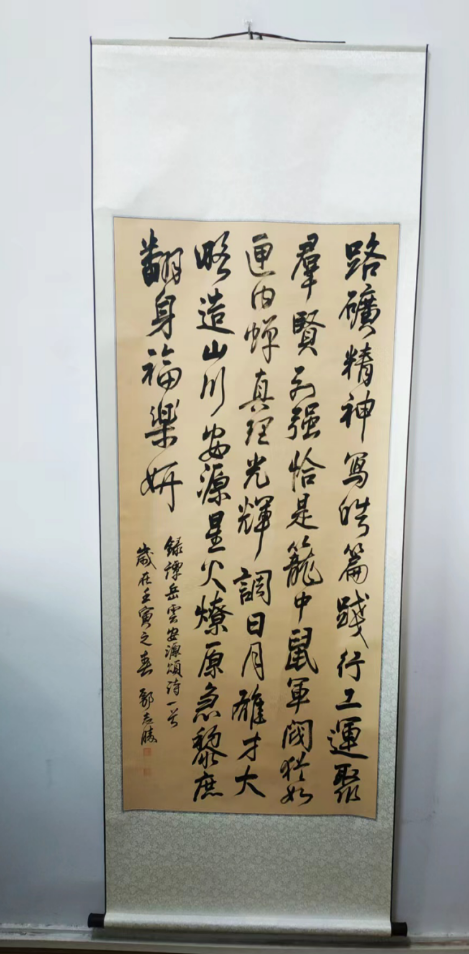 路礦精神寫皓篇踐行工運聚
羣賢列强恰是籠中鼠軍閥猶如
匣内蟬真理光輝調日月雄才大
略造山川安源星火燎原急黎庶
翻身福樂妍
錄譚岳雲安源頌詩一首
歲在壬寅之春 郭志勝